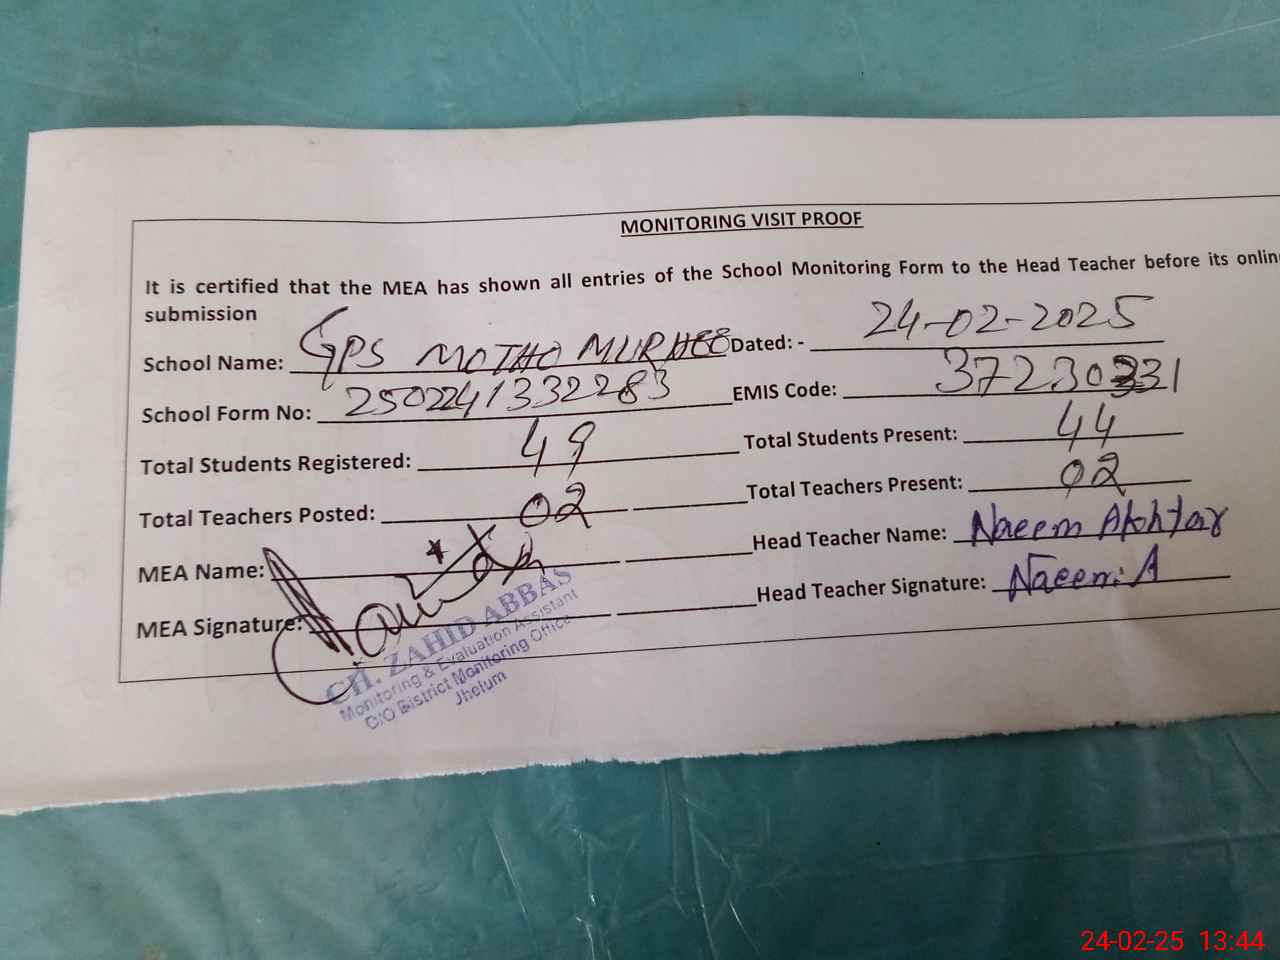 MONITORING VISIT PROOF
It is certified that the MEA has shown all entries of the School Monitoring Form to the Head Teacher before its onlin
submission
School Name: GPS MOTHO MURHEE Dated: - 24-02-2025
School Form No: 2502241332283 EMIS Code:
Total Students Registered: 49 Total Students Present: 44
Total Teachers Posted: 02 Total Teachers Present: 02
MEA Name: Head Teacher Name: Naeem Akhtar
MEA Signature: Head Teacher Signature: Naeem A
CH. ZAHID ABBAS
Monitoring & Evaluation Assistant
O/O District Monitoring Office
Jhelum
24-02-25 13:44